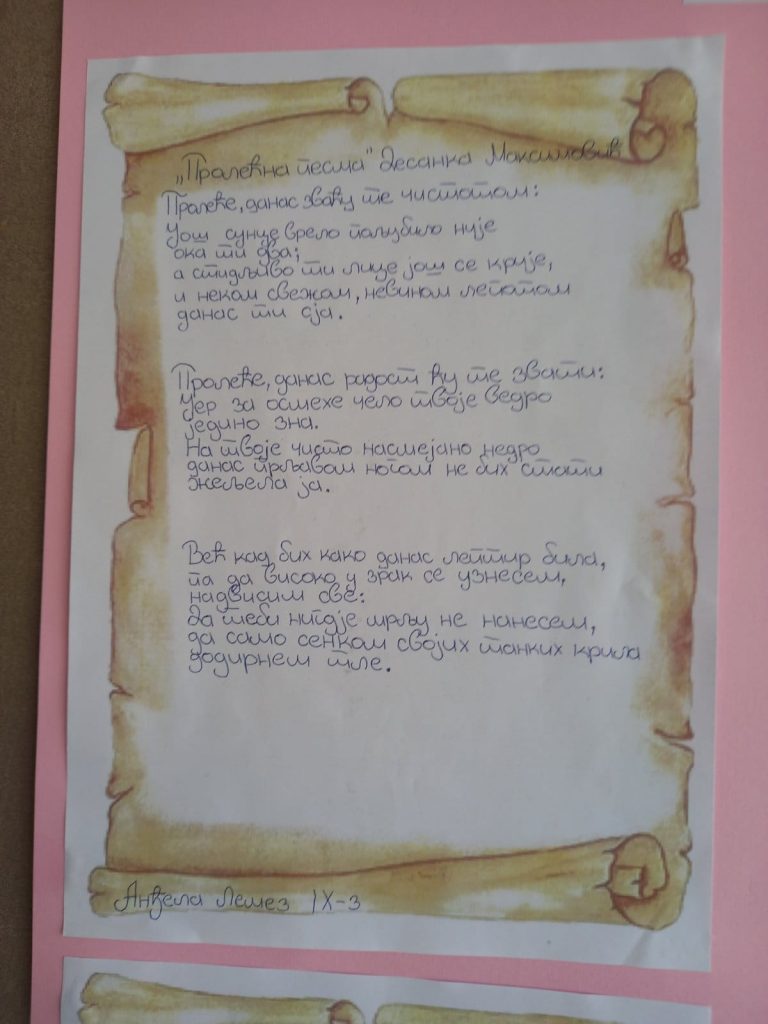 „Пралећна песма" Десанка Максимовић
Пралеће, данас зваћу те чистотом:
Још сунце врело пољубило није
ока ти два;
а стидљиво ти лице још се крије,
и неком свежом, невином лепотом
данас ти сја.
Пралеће, данас радост ћу те звати:
Јер за осмехе чело твоје ведро
једино зна.
На твоје чисто насмејано недро
данас прљавом ногом не бих стати
жељела ја.
Већ кад бих како данас лептир била,
па да високо у зрак се узнесем,
надвисим све:
да теби нигдје мрљу не нанесем,
да само сенком својих танких крила
додирнем тле.
Анђела Лемез IX-3